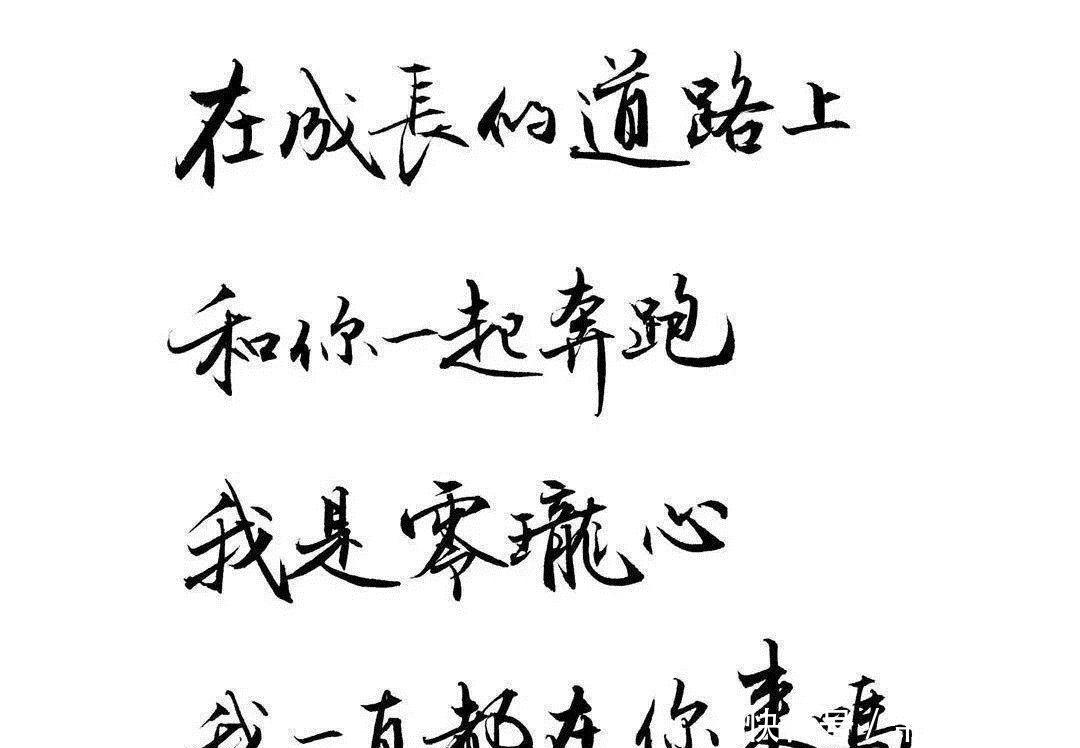 在成長的道路上
和你一起奔跑
我是零瓏心
我一直都在你